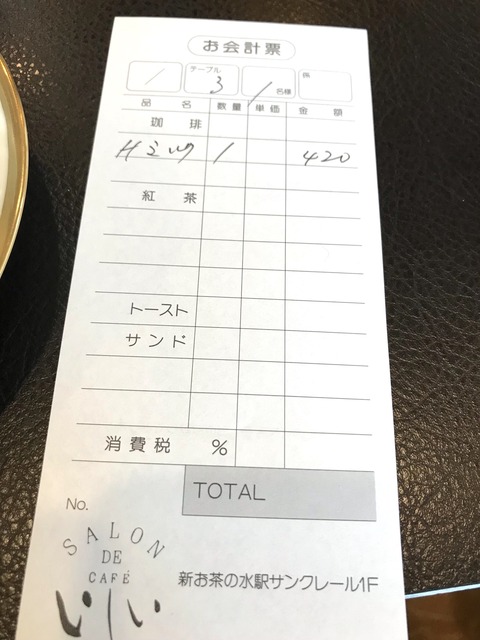 お会計票
/ テーブル 3 / 名様 係
品名 数量 単価 金額
珈琲
Hミルク / 420
紅茶
トースト
サンド
消費税 %
TOTAL
No.
SALON
DE
CAFÉ
新お茶の水駅サンクレール1F
いしい